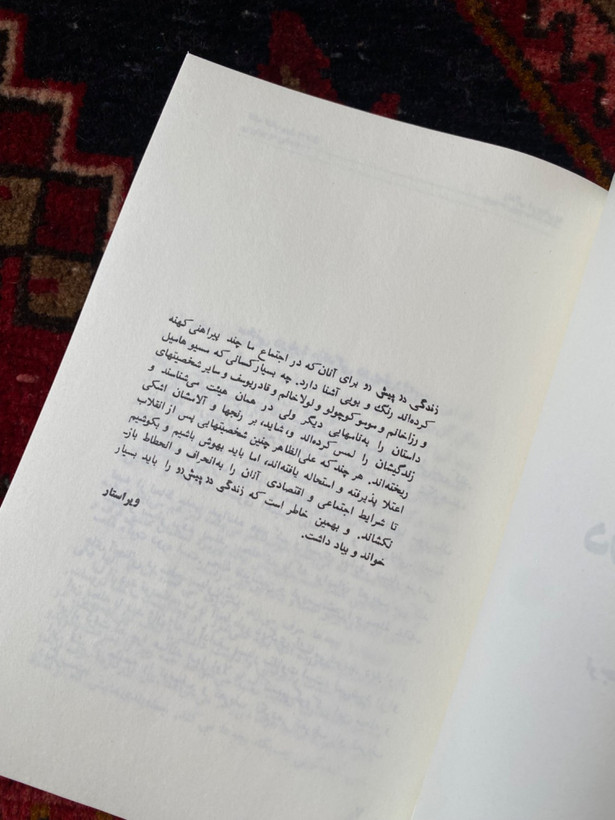 زندگی «در پیش رو» برای آنان که در اجتماع ما چند پیراهنی کهنه
کرده‌اند رنگ و بویی آشنا دارد. چه بسیار کسانی که مسیو هامیل
و رزاخانم و مومو کوچولو و لولاخانم و قادریوسف و سایر شخصیتهای
داستان را به‌نامهایی دیگر ولی در همان هیئت می‌شناسند و
زندگیشان را لمس کرده‌اند و، شاید، بر رنجها و آلامشان اشکی
ریخته‌اند. هر چند که علی‌الظاهر چنین شخصیتهایی پس از انقلاب
اعتلا پذیرفته و استحاله یافته‌اند، اما باید بهوش باشیم و بکوشیم
تا شرایط اجتماعی و اقتصادی آنان را به‌انحراف و انحطاط باز
نکشاند. و بهمین خاطر است که زندگی «در پیش رو» را باید بسیار
خواند و بیاد داشت.
ویراستار